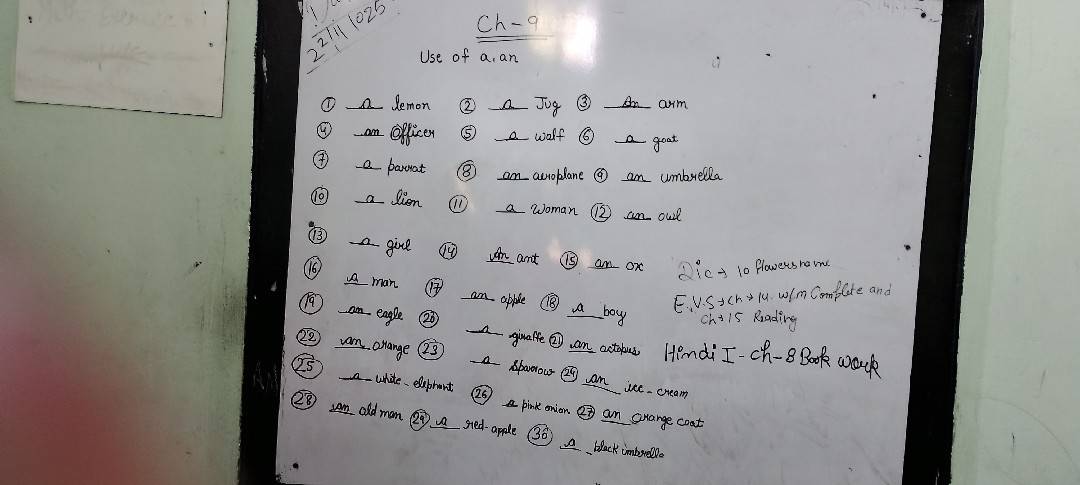 22/11/025
Ch-9
Use of a, an
① a lemon ② a Jug ③ An arm
④ an Officer ⑤ a walf ⑥ a goat
⑦ a parrat ⑧ an aeroplane ⑨ an umbrella
⑩ a lion ⑪ a woman ⑫ an owl
⑬ a girl ⑭ An ant ⑮ an ox
⑯ a man ⑰ an apple ⑱ a boy
⑲ an eagle ⑳ a giraffe ㉑ an octopus
㉒ an orange ㉓ a sparrow ㉔ an ice-cream
㉕ a white-elephant ㉖ a pink onion ㉗ an orange coat
㉘ an old man ㉙ a red-apple ㉚ a black umbrella
Dic → 10 flowers name
E.V.S → Ch → 14. w/m Complete and
Ch → 15 Reading
Hindi I - ch-8 Book work